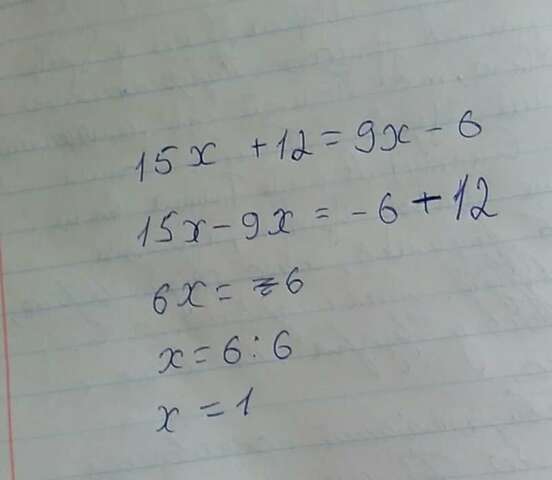 15x + 12 = 9x - 6
15x - 9x = -6 + 12
6x = 6
x = 6 : 6
x = 1